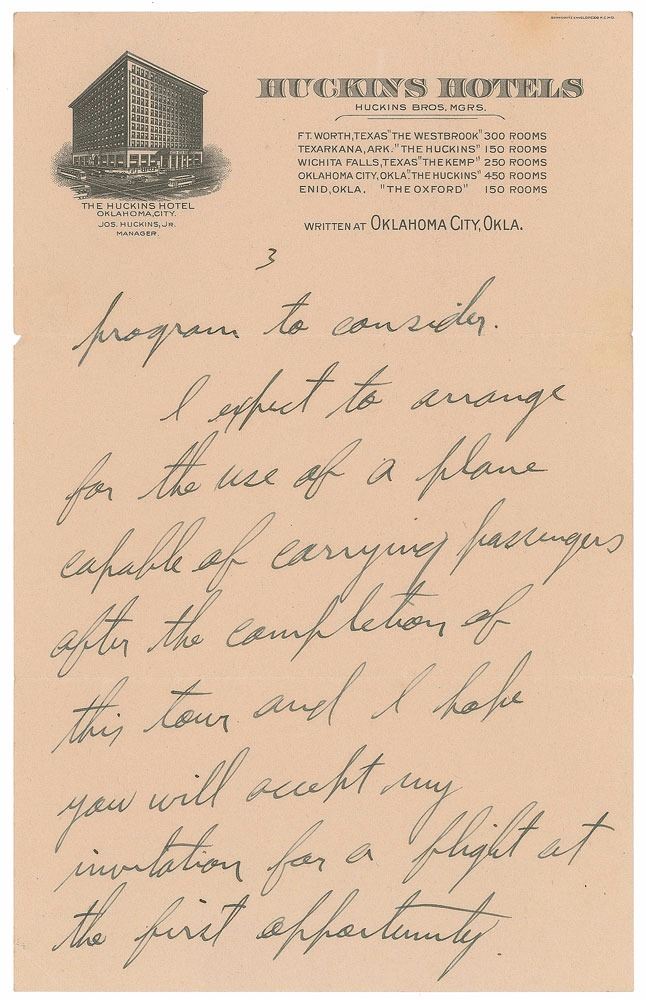 HUCKINS HOTELS
HUCKINS BROS. MGRS.
FT. WORTH, TEXAS "THE WESTBROOK" 300 ROOMS
TEXARKANA, ARK. "THE HUCKINS" 150 ROOMS
WICHITA FALLS, TEXAS "THE KEMP" 250 ROOMS
OKLAHOMA CITY, OKLA. "THE HUCKINS" 450 ROOMS
ENID, OKLA. "THE OXFORD" 150 ROOMS
THE HUCKINS HOTEL
OKLAHOMA, CITY.
JOS. HUCKINS, JR.
MANAGER.
WRITTEN AT OKLAHOMA CITY, OKLA.
3
program to consider.
I expect to arrange
for the use of a plane
capable of carrying passengers
after the completion of
this tour and I hope
you will accept my
invitation for a flight at
the first opportunity.